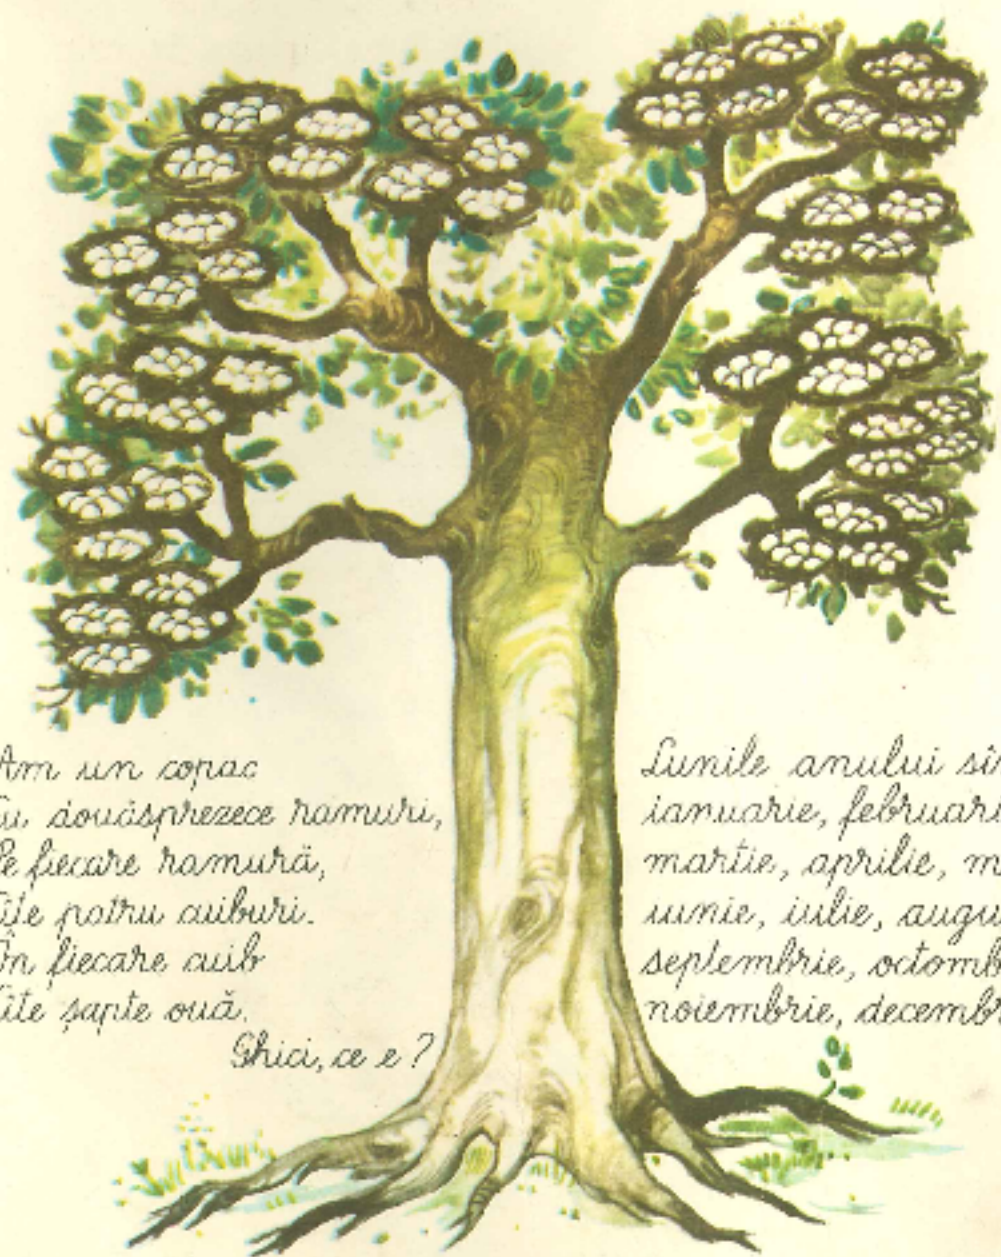 Am un copac
Cu douăsprezece ramuri,
Pe fiecare ramură,
Cîte patru cuiburi.
În fiecare cuib
Cîte șapte ouă.
Ghici, ce e?
Lunile anului sîn
ianuarie, februari
martie, aprilie, m
iunie, iulie, augu
septembrie, octomb
noiembrie, decembr